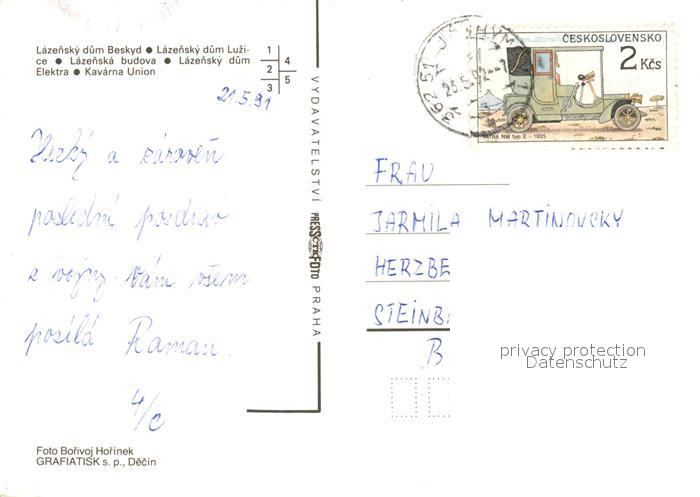 Lázeňský dům Beskyd ● Lázeňský dům Luži-
ce ● Lázeňská budova ● Lázeňský dům
Elektra ● Kavárna Union
1
2 4
3 5
21.5.91
Hezký a zároveň
poslední pozdrav
z vojny Vám všem
posílá Raman.
4/c
Foto Bořivoj Hořínek
GRAFIATISK s. p., Děčín
VYDAVATELSTVÍ PRESSFOTO PRAHA
362 51 JÁCHYMOV
ČESKOSLOVENSKO
2 Kčs
TATRA NW typ E - 1905
FRAU
JARMILA MARTINOVSKY
HERZBE
STEINB
B
privacy protection
Datenschutz